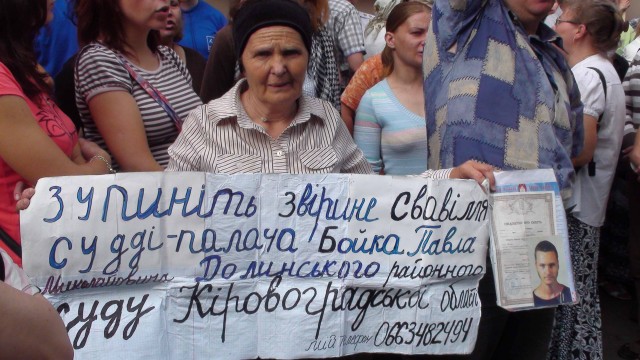 Зупиніть звірине свавілля
судді-палача Бойка Павла
Миколайовича Долинського районного
суду Кіровоградської області
мій телефон 0663482494